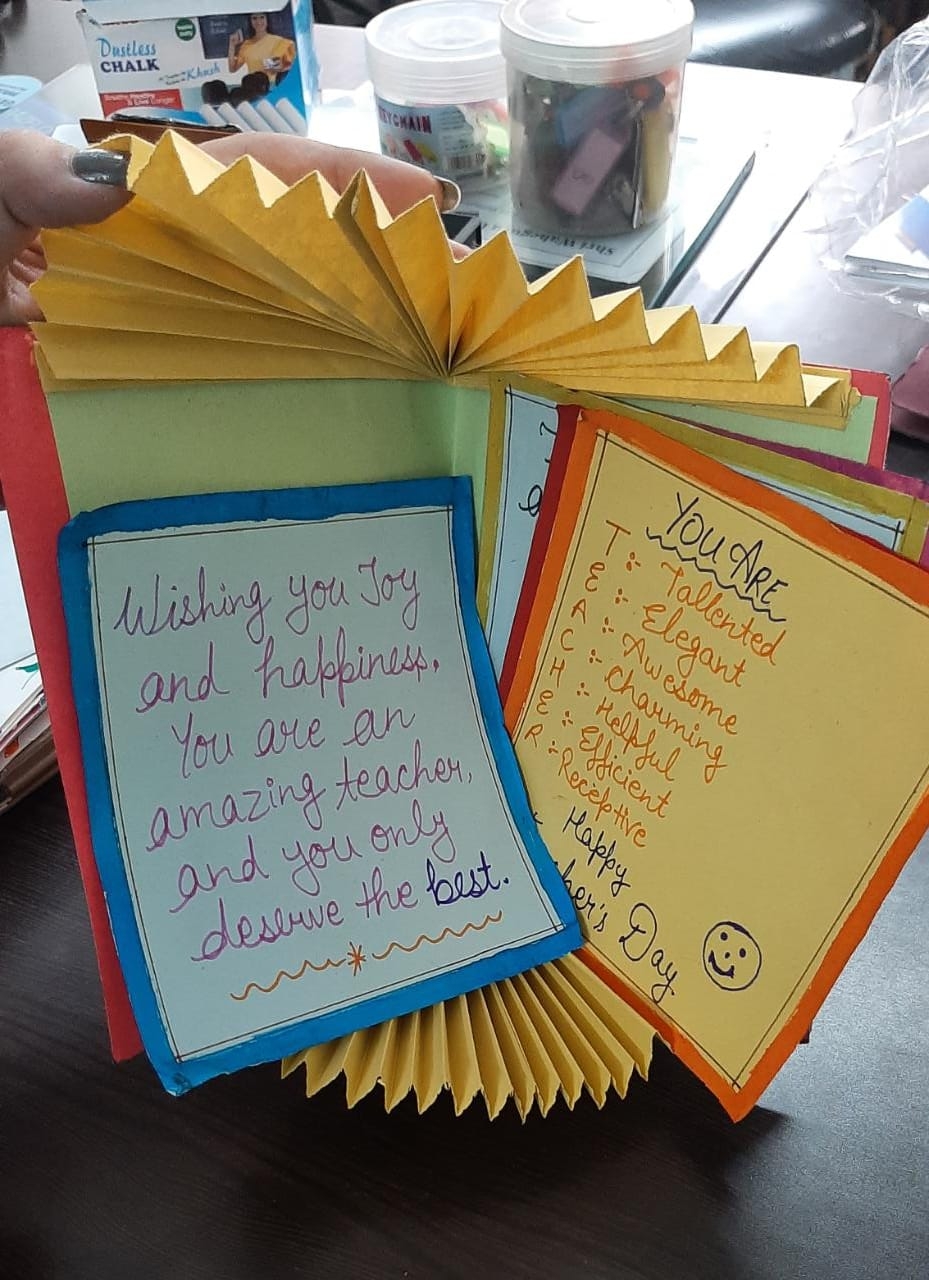 Dustless
CHALK
Khush
KEYCHAIN
Wishing you Joy
and happiness.
You are an
amazing teacher,
and you only
deserve the best.
YOU ARE
T :- Tallented
E :- Elegant
A :- Awesome
C :- Charming
H :- Helpful
E :- Efficient
R :- Receptive
Happy
Day